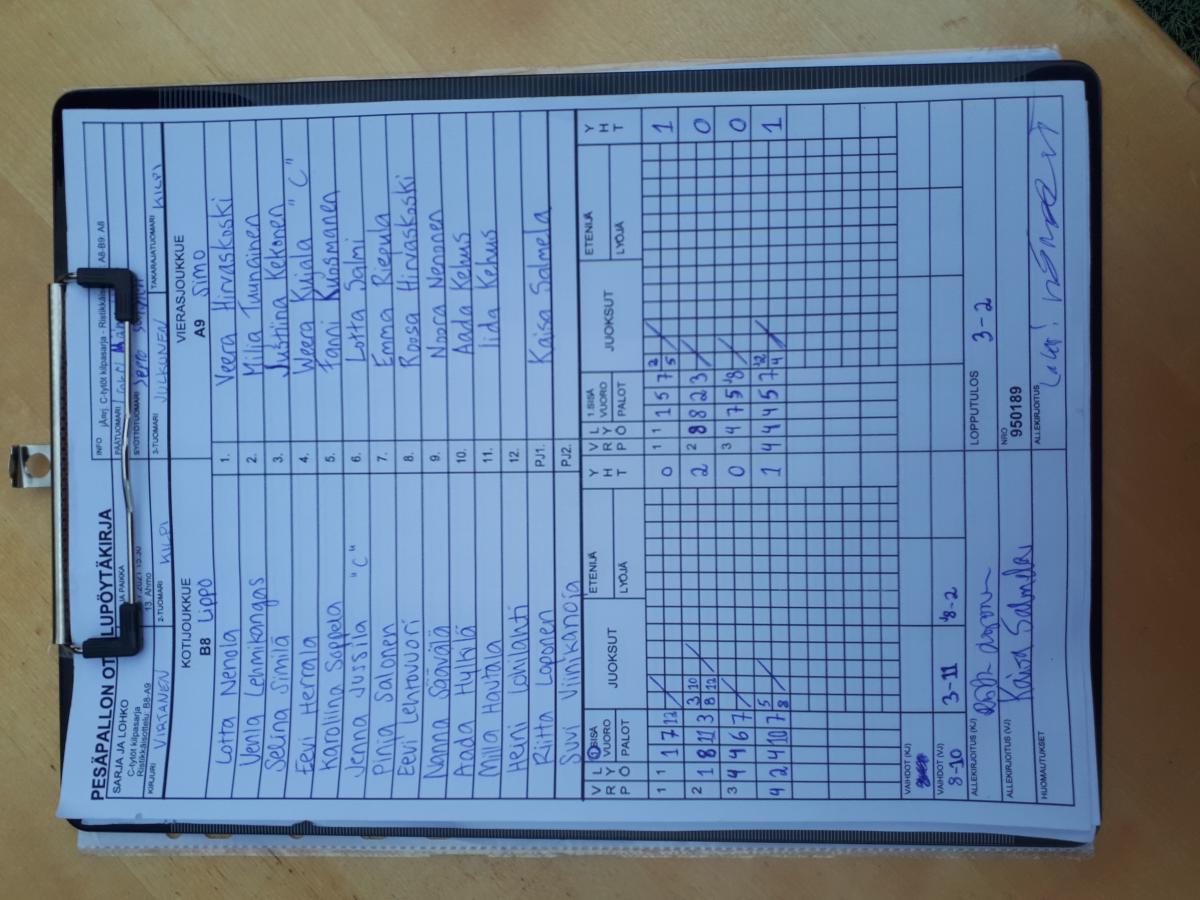 PESÄPALLON OT LUPÖYTÄKIRJA
SARJA JA LOHKO
C-tytöt kilpasarja
Ristikkäisottelu: B8-A9
JA PAIKKA
2021 13:30
13. Ahmo
INFO
C-tytöt kilpasarja - Ristikkäis A8-B9: A8
PÄÄTUOMARI
SYÖTTÖTUOMARI
KIRJURI VIRTANEN
2-TUOMARI KILPI
3-TUOMARI VULKUNEN
TAKARAJATUOMARI KILPI
KOTIJOUKKUE
B8 Lippo
VIERASJOUKKUE
A9 Simo
Lotta Nenola 1. Veera Hirvaskoski
Venla Lehmikangas 2. Milla Tuunainen
Selina Similä 3. Justiina Kekonen
Eevi Herrala 4. Weera Kujala "C"
Karoliina Seppela 5. Fanni Kuosmanen
Jenna Jussila "C" 6. Lotta Salmi
Pinja Salonen 7. Emma Riepula
Eevi Lehtovuori 8. Roosa Hirvaskoski
Nanna Säävälä 9. Noora Nenonen
Aada Hylkilä 10. Aada Kehus
Milla Hautala 11. Iida Kehus
Heini Lohilahti 12.
Riitta Loponen PJ1. Kaisa Salmela
Suvi Viinikanoja PJ2.
V R P L Y Ö 1.SISÄ VUORO PALOT JUOKSUT ETENIJÄ LYÖJÄ Y H T V R P L Y Ö 1.SISÄ VUORO PALOT JUOKSUT ETENIJÄ LYÖJÄ Y H T
1 1 1 7 12 0 1 1 1 5 7 2 5 1
2 1 8 11 3 3 10 8 12 2 2 8 8 2 3 0
3 4 4 6 7 0 3 4 7 5 8 0
4 2 4 10 7 5 8 1 4 4 4 5 7 12 4 1
VAIHDOT (KJ)
VAIHDOT (VJ)
8-10 3-11 8-2
LOPPUTULOS 3-2
ALLEKIRJOITUS (KJ)
ALLEKIRJOITUS (VJ) Kaisa Salmela
NRO
950189
HUOMAUTUKSET
ALLEKIRJOITUS